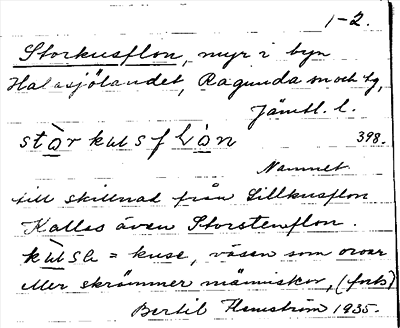 1-2.
Storkusflon, myr i byn
Halasjölandet, Ragunda sn och tg,
Jämtl. l.
stòrkusflòn 398.
Namnet
till skillnad från Lillkusflon
Kallas även Storstensflon.
kusa = kuse, väsen som oroar
eller skrämmer människor, (forts)
Bertil Flemström 1935.